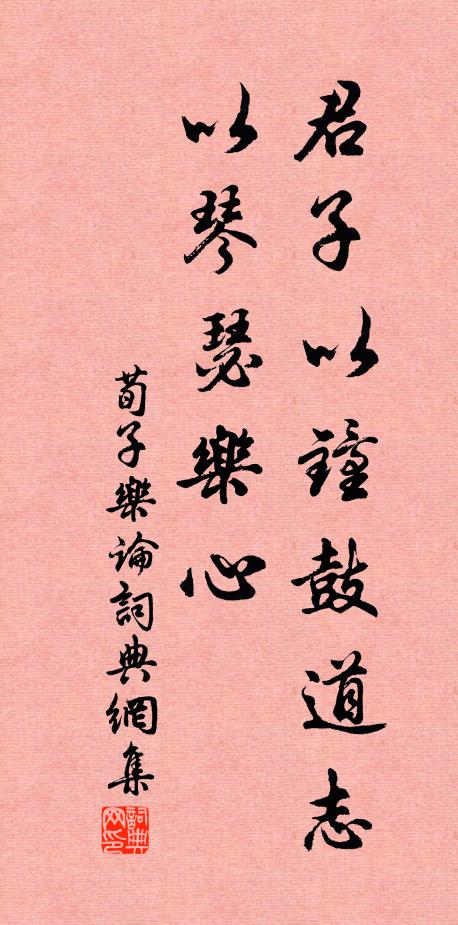 君子以鐘鼓道志
以琴瑟樂心
荀子樂論詞典網集
詞典网印